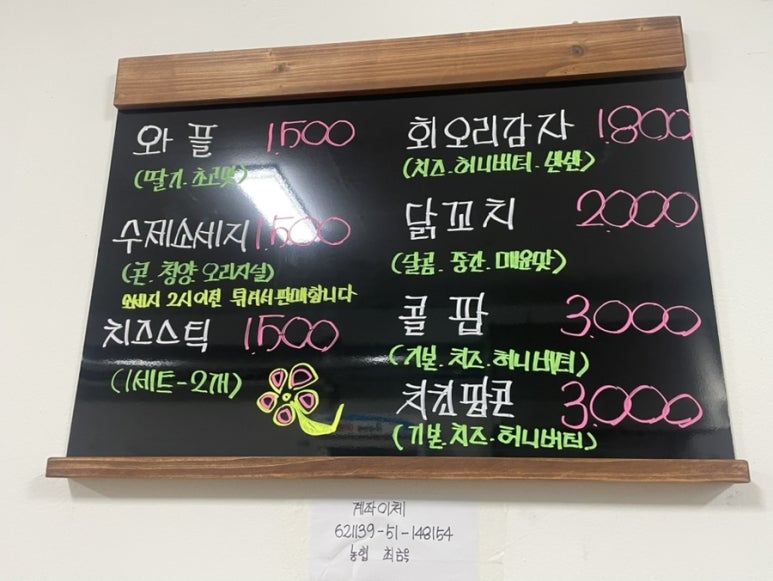 와플 1.500
(딸기.초코맛)
수제소세지 1.500
(콘.청양.오리지널)
소세지 2시이전 튀겨서판매합니다
치즈스틱 1.500
(1세트-2개)
회오리감자 1.800
(치즈.허니버터.)
닭꼬치 2.000
(달콤.중간.매운맛)
콜팝 3.000
(기본.치즈.허니버터)
치킨팝콘 3.000
(기본.치즈.허니버터.)
계좌이체
621139-51-148154
농협